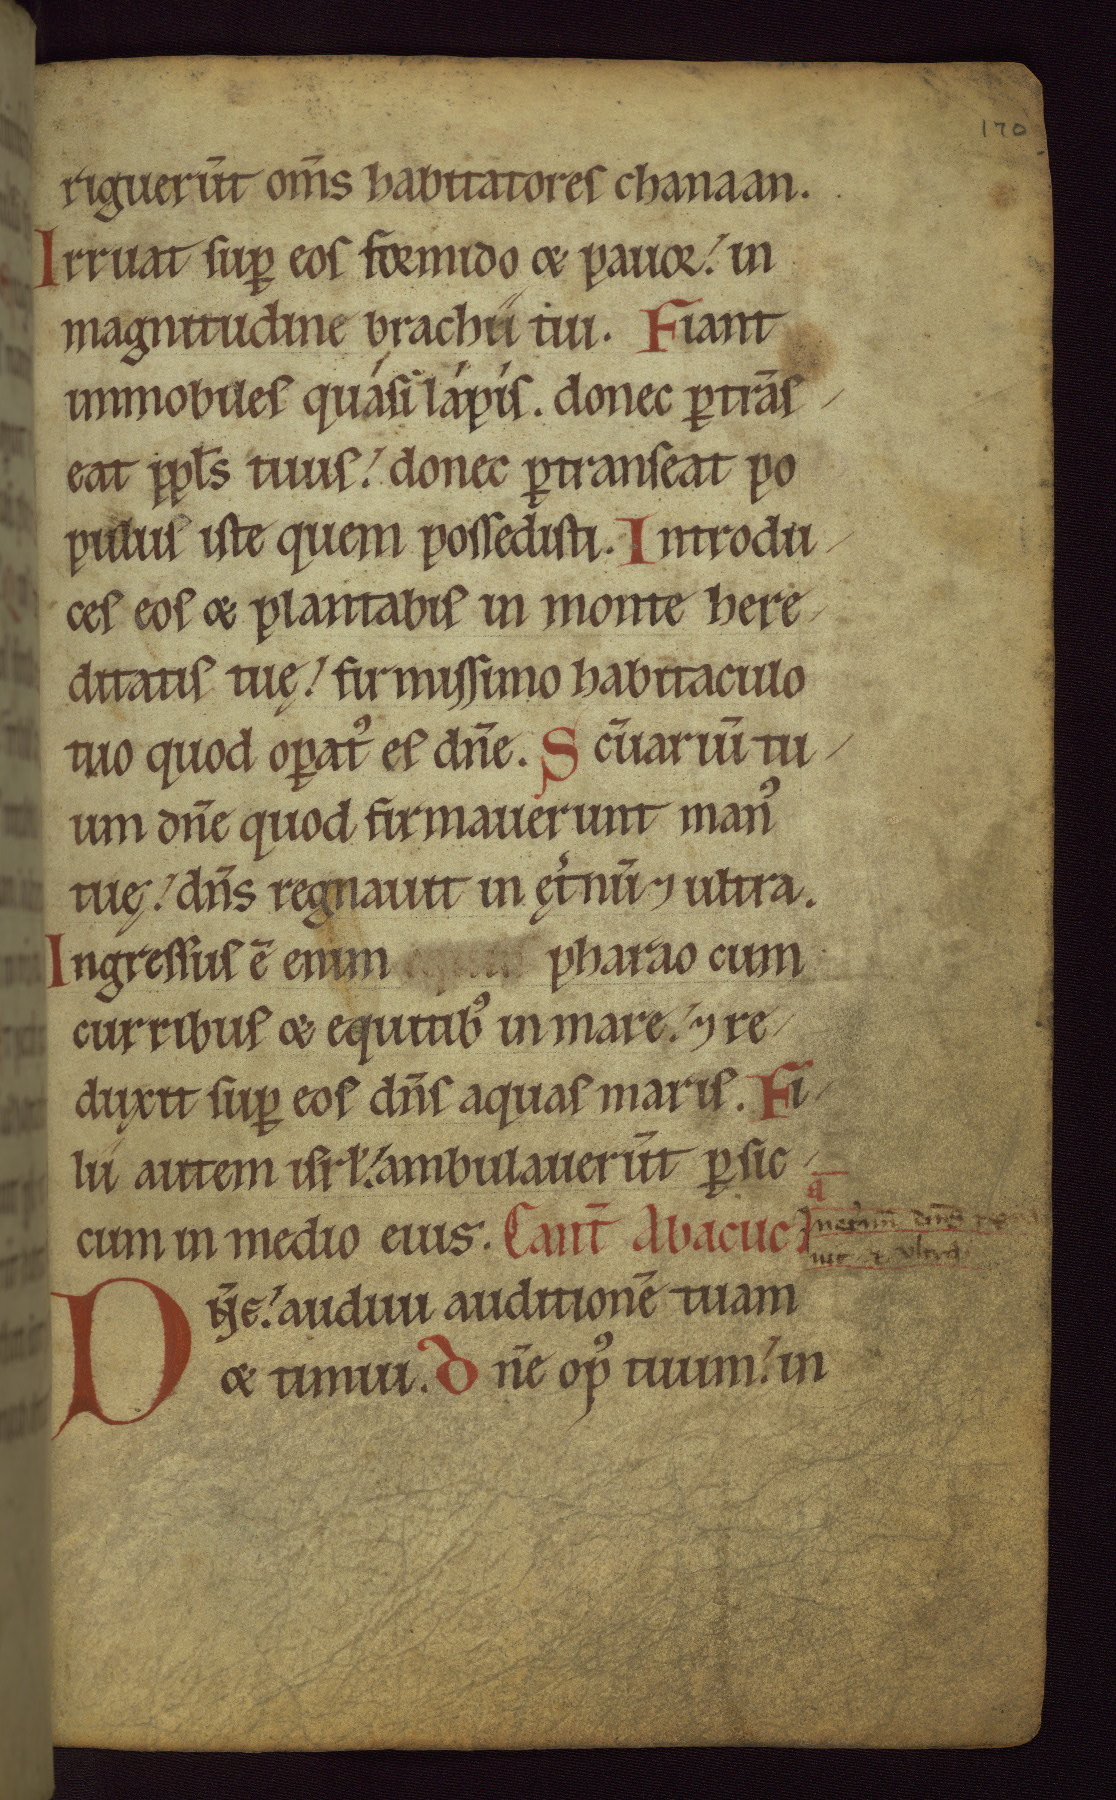 170
riguerūt om̄s habitatores chanaan.
Irruat sup̱ eos formido & pauor! in
magnitudine brachii tui. Fiant
immobiles quasi lapis. donec ꝑtrās
eat ppl̄s tuus! donec ꝑtranseat po
pulus iste quem possedisti. Introdu
ces eos & plantabis in monte here
ditatis tuę! firmissimo habitaculo
tuo quod oꝑatꝰ es dn̄e. Scūariū tu
um dn̄e quod firmauerunt manꝰ
tuę! dn̄s regnauit in ęt̉nū ⁊ ultra.
Ingressus ē enim pharao cum
curribus & equitibꝰ in mare! ⁊ re
duxit suꝑ eos dn̄s aquas maris. Fi
lii autem isrl̄! ambulauerūt ꝑ sic
cum in medio eius. Cant̄ Abacuc
a
dn̄s
⁊ ultra
Dn̄e! audiui auditionē tuam
& timui. Dn̄e opꝰ tuum! in